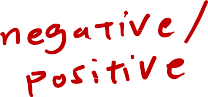 negative/
positive